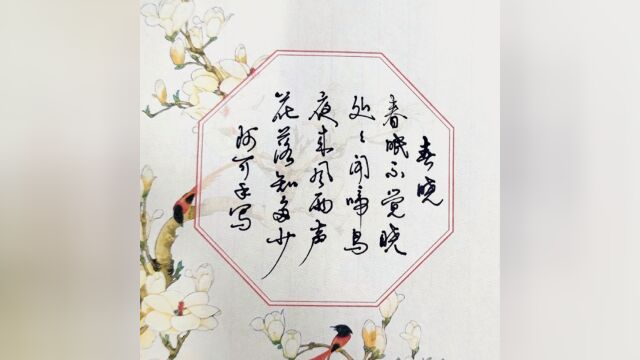 春晓
春眠不觉晓
处々闻啼鸟
夜来风雨声
花落知多少
阿可手写